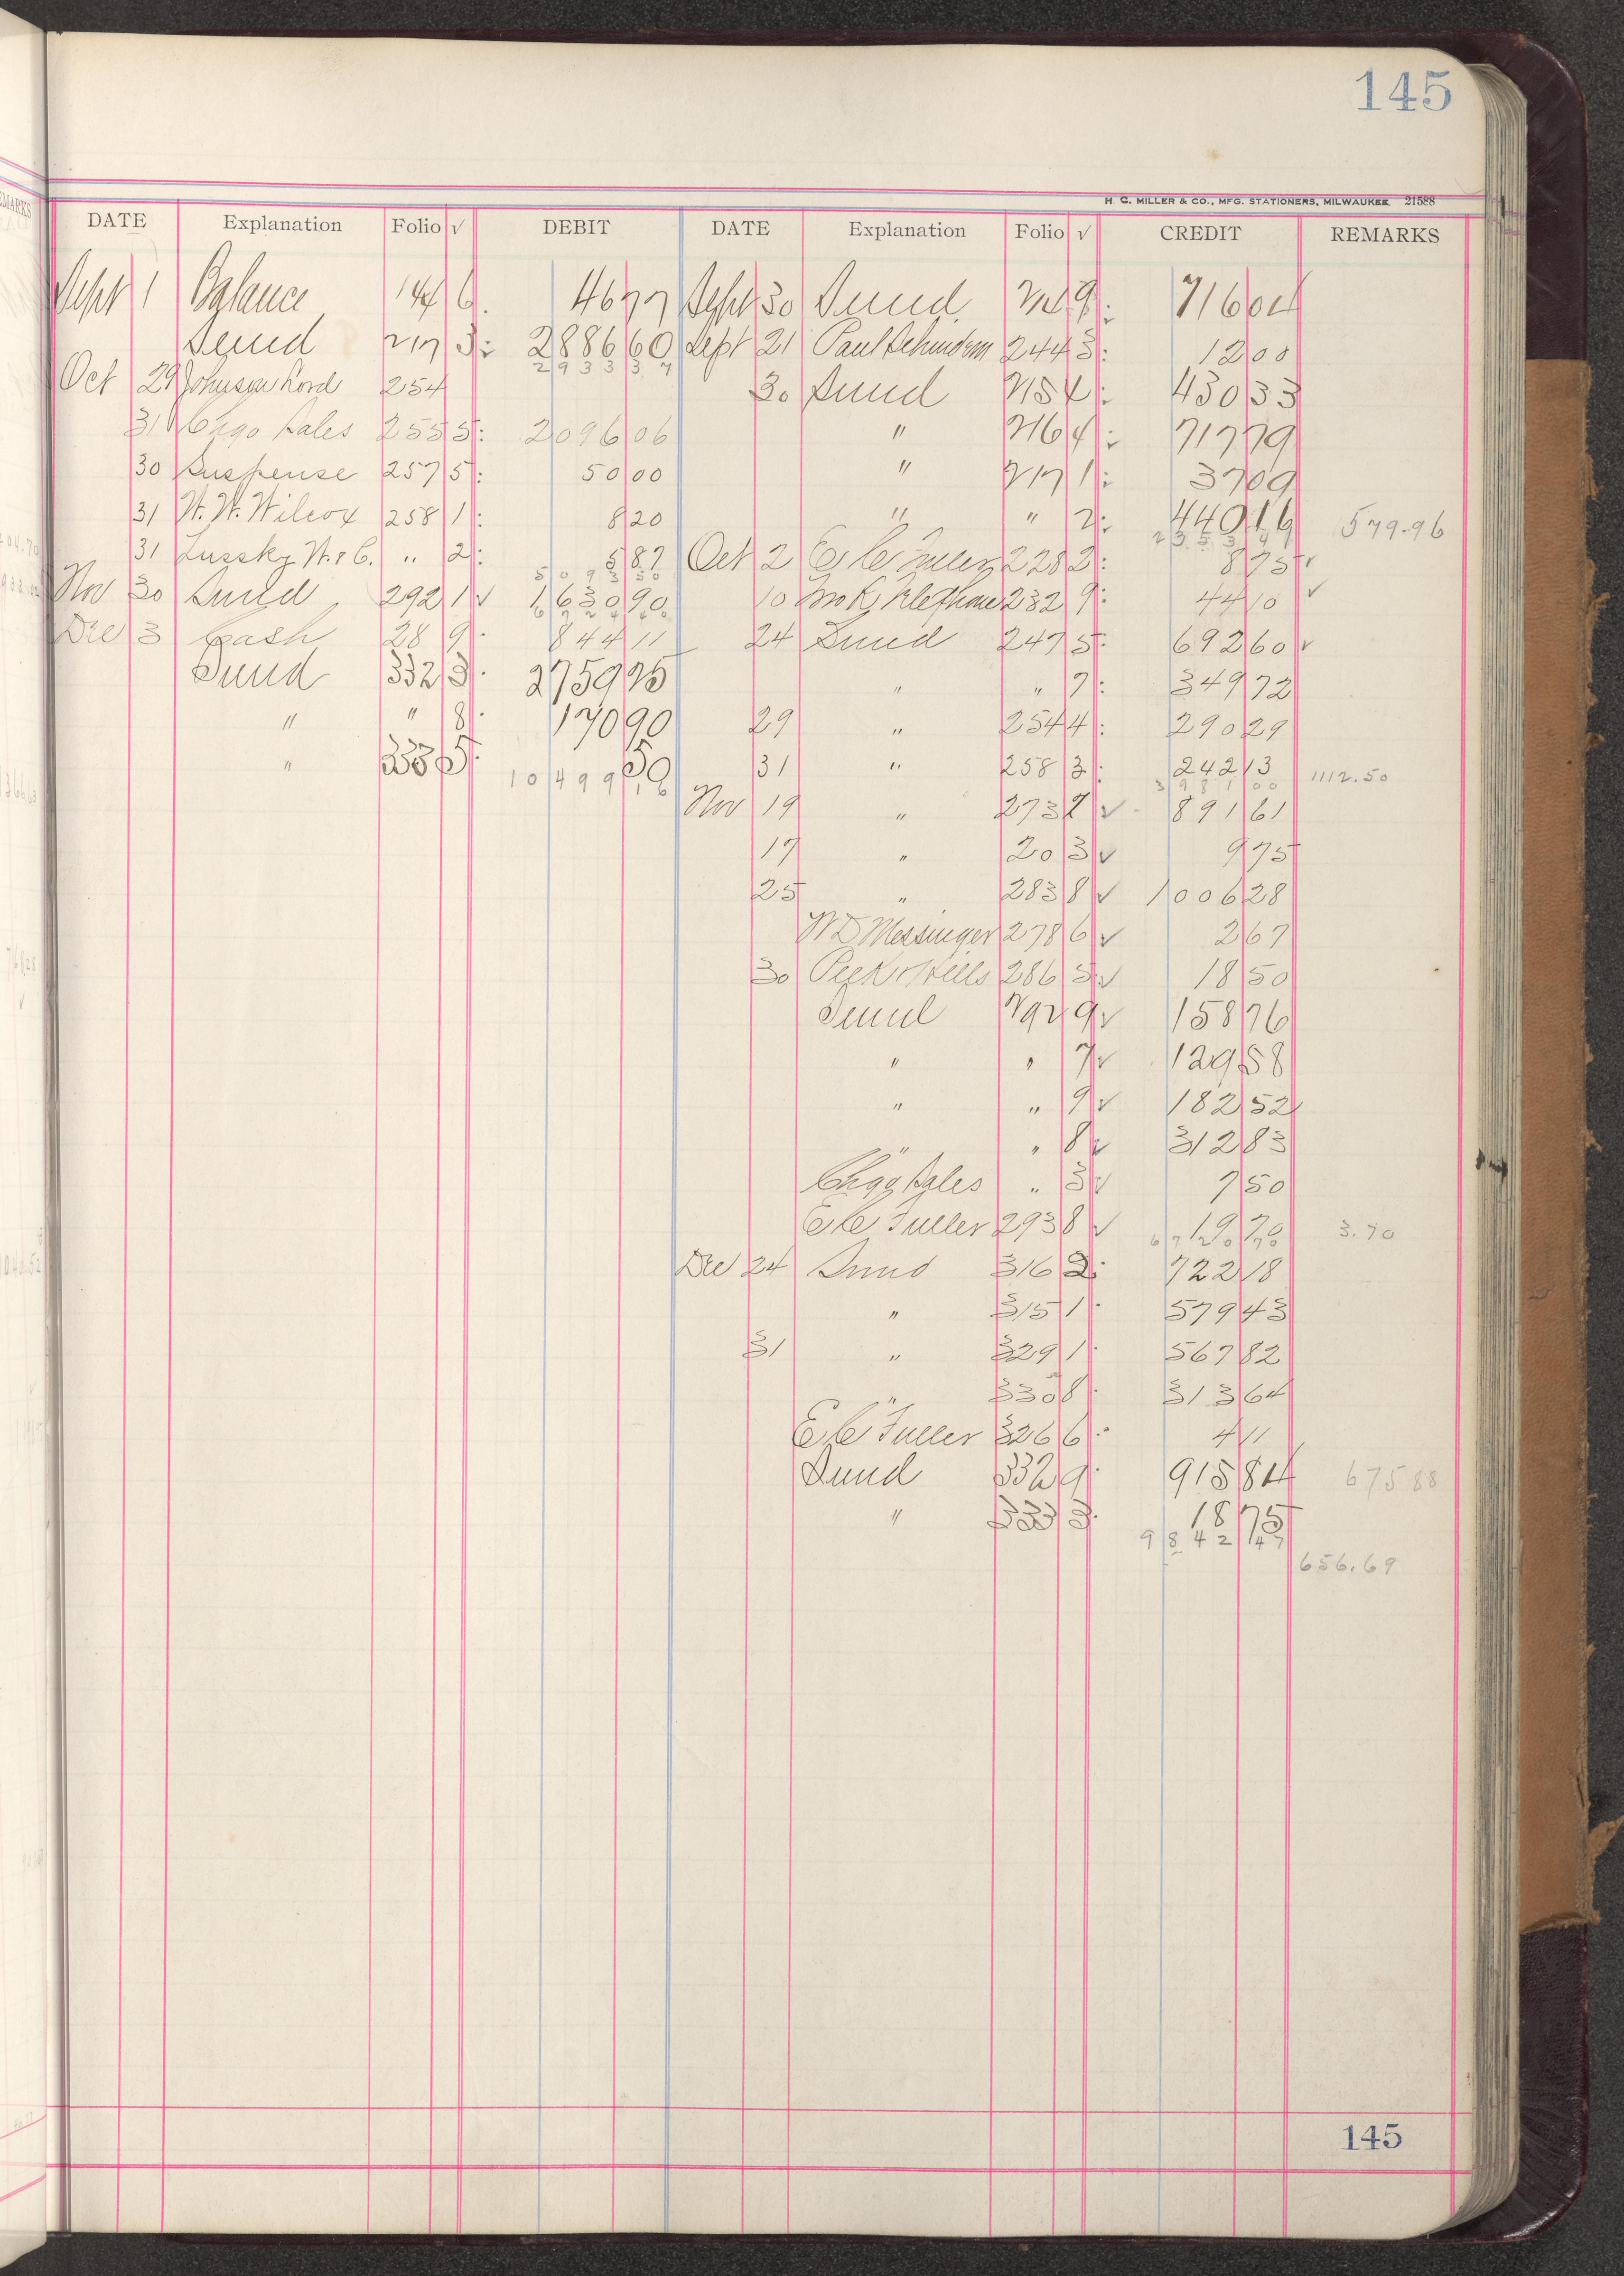 145
H. C. MILLER & CO., MFG. STATIONERS, MILWAUKEE 21588
DATE Explanation Folio √ DEBIT DATE Explanation Folio √ CREDIT REMARKS
Sept 1 Balance 144 6. 46 77 Sept 30 Sund 214 9: 716 04
Sund 217 3: 2886 60 Sept 21 Paul 244 3: 12 00
2933 37
Oct 29 Johnson Lord 254 30 Sund 215 4: 430 33
31 Chgo Sales 255 5: 2096 06 " 216 4: 717 79
30 Suspense 257 5: 50 00 " 217 1: 37 09
31 W. W. Wilcox 258 1: 8 20 " " 2: 440 16 579.96
31 Lussky W. & C. " 2: 5 87 Oct 2 E C Fuller 228 2: 8 75
5093 50
Nov 30 Sund 292 1 √ 1630 90 10 232 9: 44 10 √
Dec 3 Cash 28 9: 844 11 24 Sund 247 5: 692 60 √
Sund 332 3: 2759 75 " " 7: 349 72
" " 8: 170 90 29 " 254 4: 290 29
" 333 5: 50 31 " 258 3: 242 13 1112.50
10499 16
3981 00
Nov 19 " 273 7 √ 891 61
17 " 20 3 √ 9 75
25 " 283 8 √ 1006 28
W D Messinger 278 6 √ 2 67
30 Peck & Hills 286 5 √ 18 50
Sund 292 9 √ 158 76
" " 7 √ 129 58
" " 9 √ 182 52
" " 8 √ 312 83
Chgo Sales " 3 √ 7 50
E C Fuller 293 8 √ 19 70 3.70
Dec 24 Sund 316 2: 722 18
" 315 1: 579 43
31 " 329 1: 567 82
" 330 8: 313 64
E C Fuller 326 6: 4 11
Sund 332 9: 915 84 675 88
" 333 3: 18 75
9842 47
656.69
145